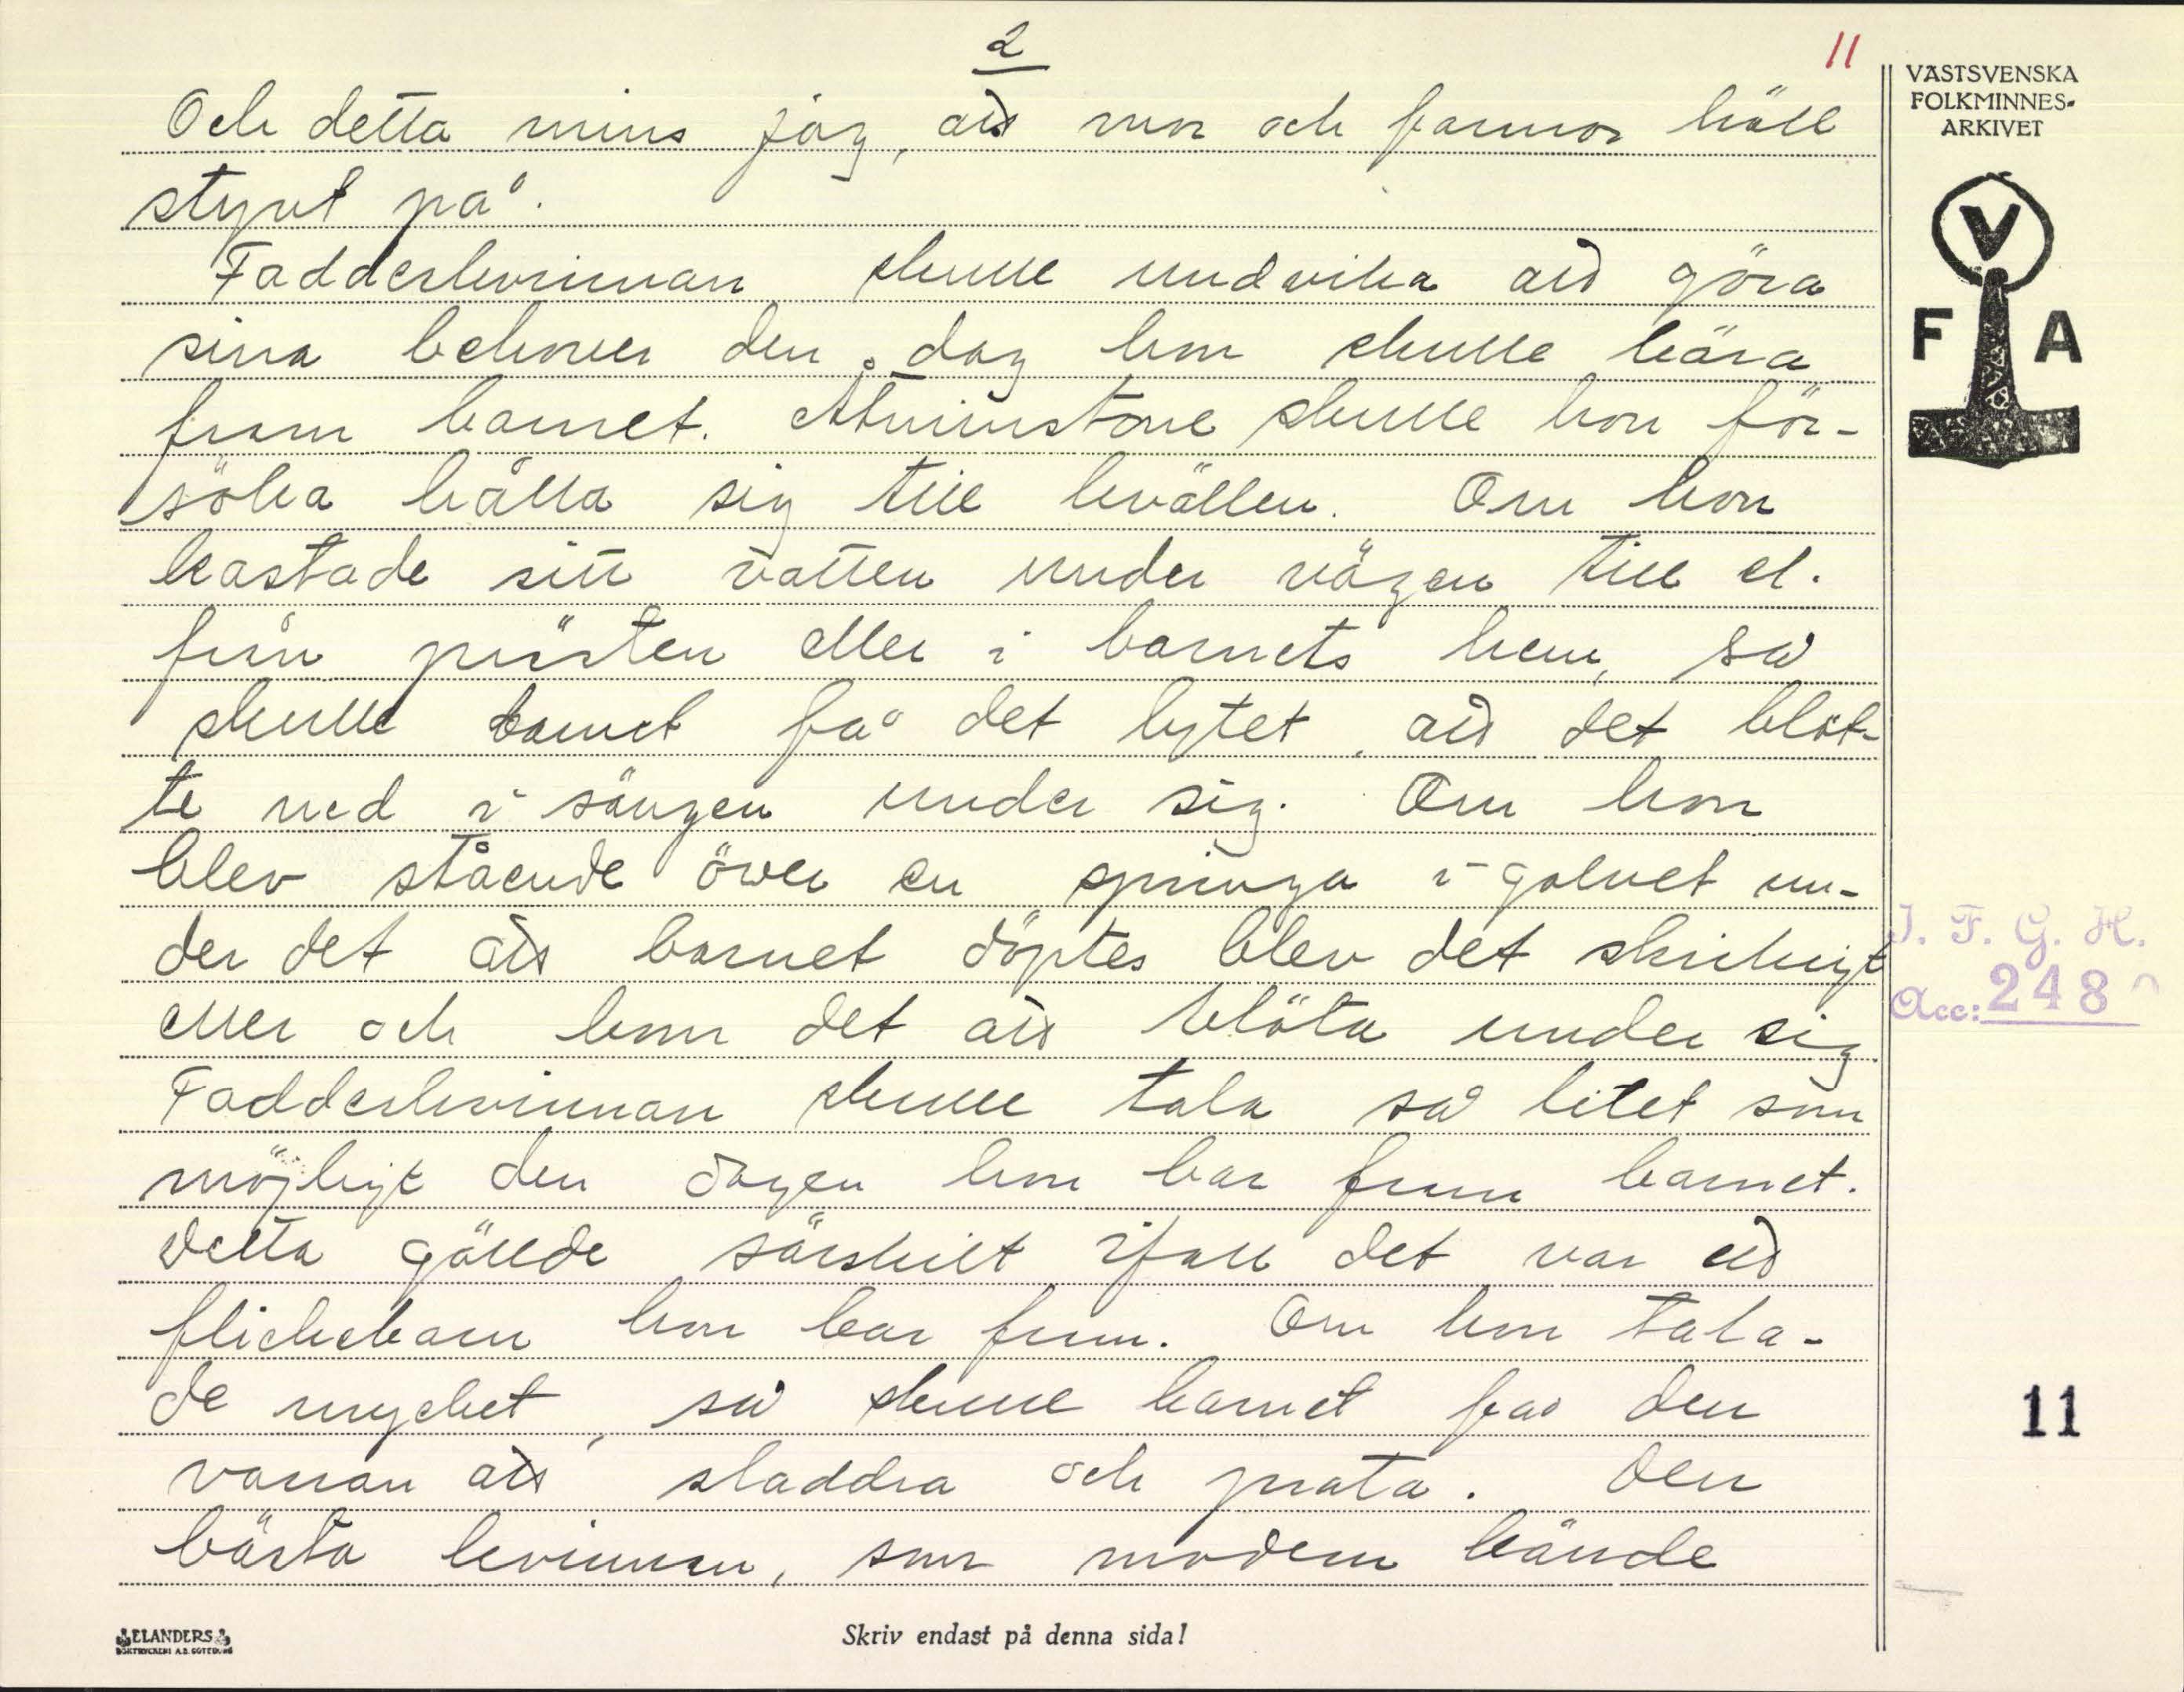 2
11
Och detta mins jag, att mor och farmor höll
styvt på.
Fadderkvinnan skulle undvika att göra
sina behover den dag hon skulle bära
fram barnet. Åtminstone skulle hon för-
söka hålla sig till kvällen. Om hon
kastade sitt vatten under vägen till el.
från prästen eller i barnets hem, så
skulle barnet få det lytet, att det blöt-
te ned i sängen under sig. Om hon
blev stående över en springa i golvet un-
der det att barnet döptes blev det skrikigt
eller och kom det att blöta under sig
Fadderkvinnan skulle tala så litet som
möjligt den dagen hon bar fram barnet.
Detta gällde särskilt ifall det var ett
flickebarn hon bar fram. Om hon tala-
de mycket, så skulle barnet få den
vanan att sladdra och prata. Den
bästa kvinnan, som modern kände
VÄSTSVENSKA
FOLKMINNES-
ARKIVET
V
F A
I. F. G. H.
Acc: 248
11
ELANDERS
BOKTRYCKERI A.B. GÖTEBORG
Skriv endast på denna sida!